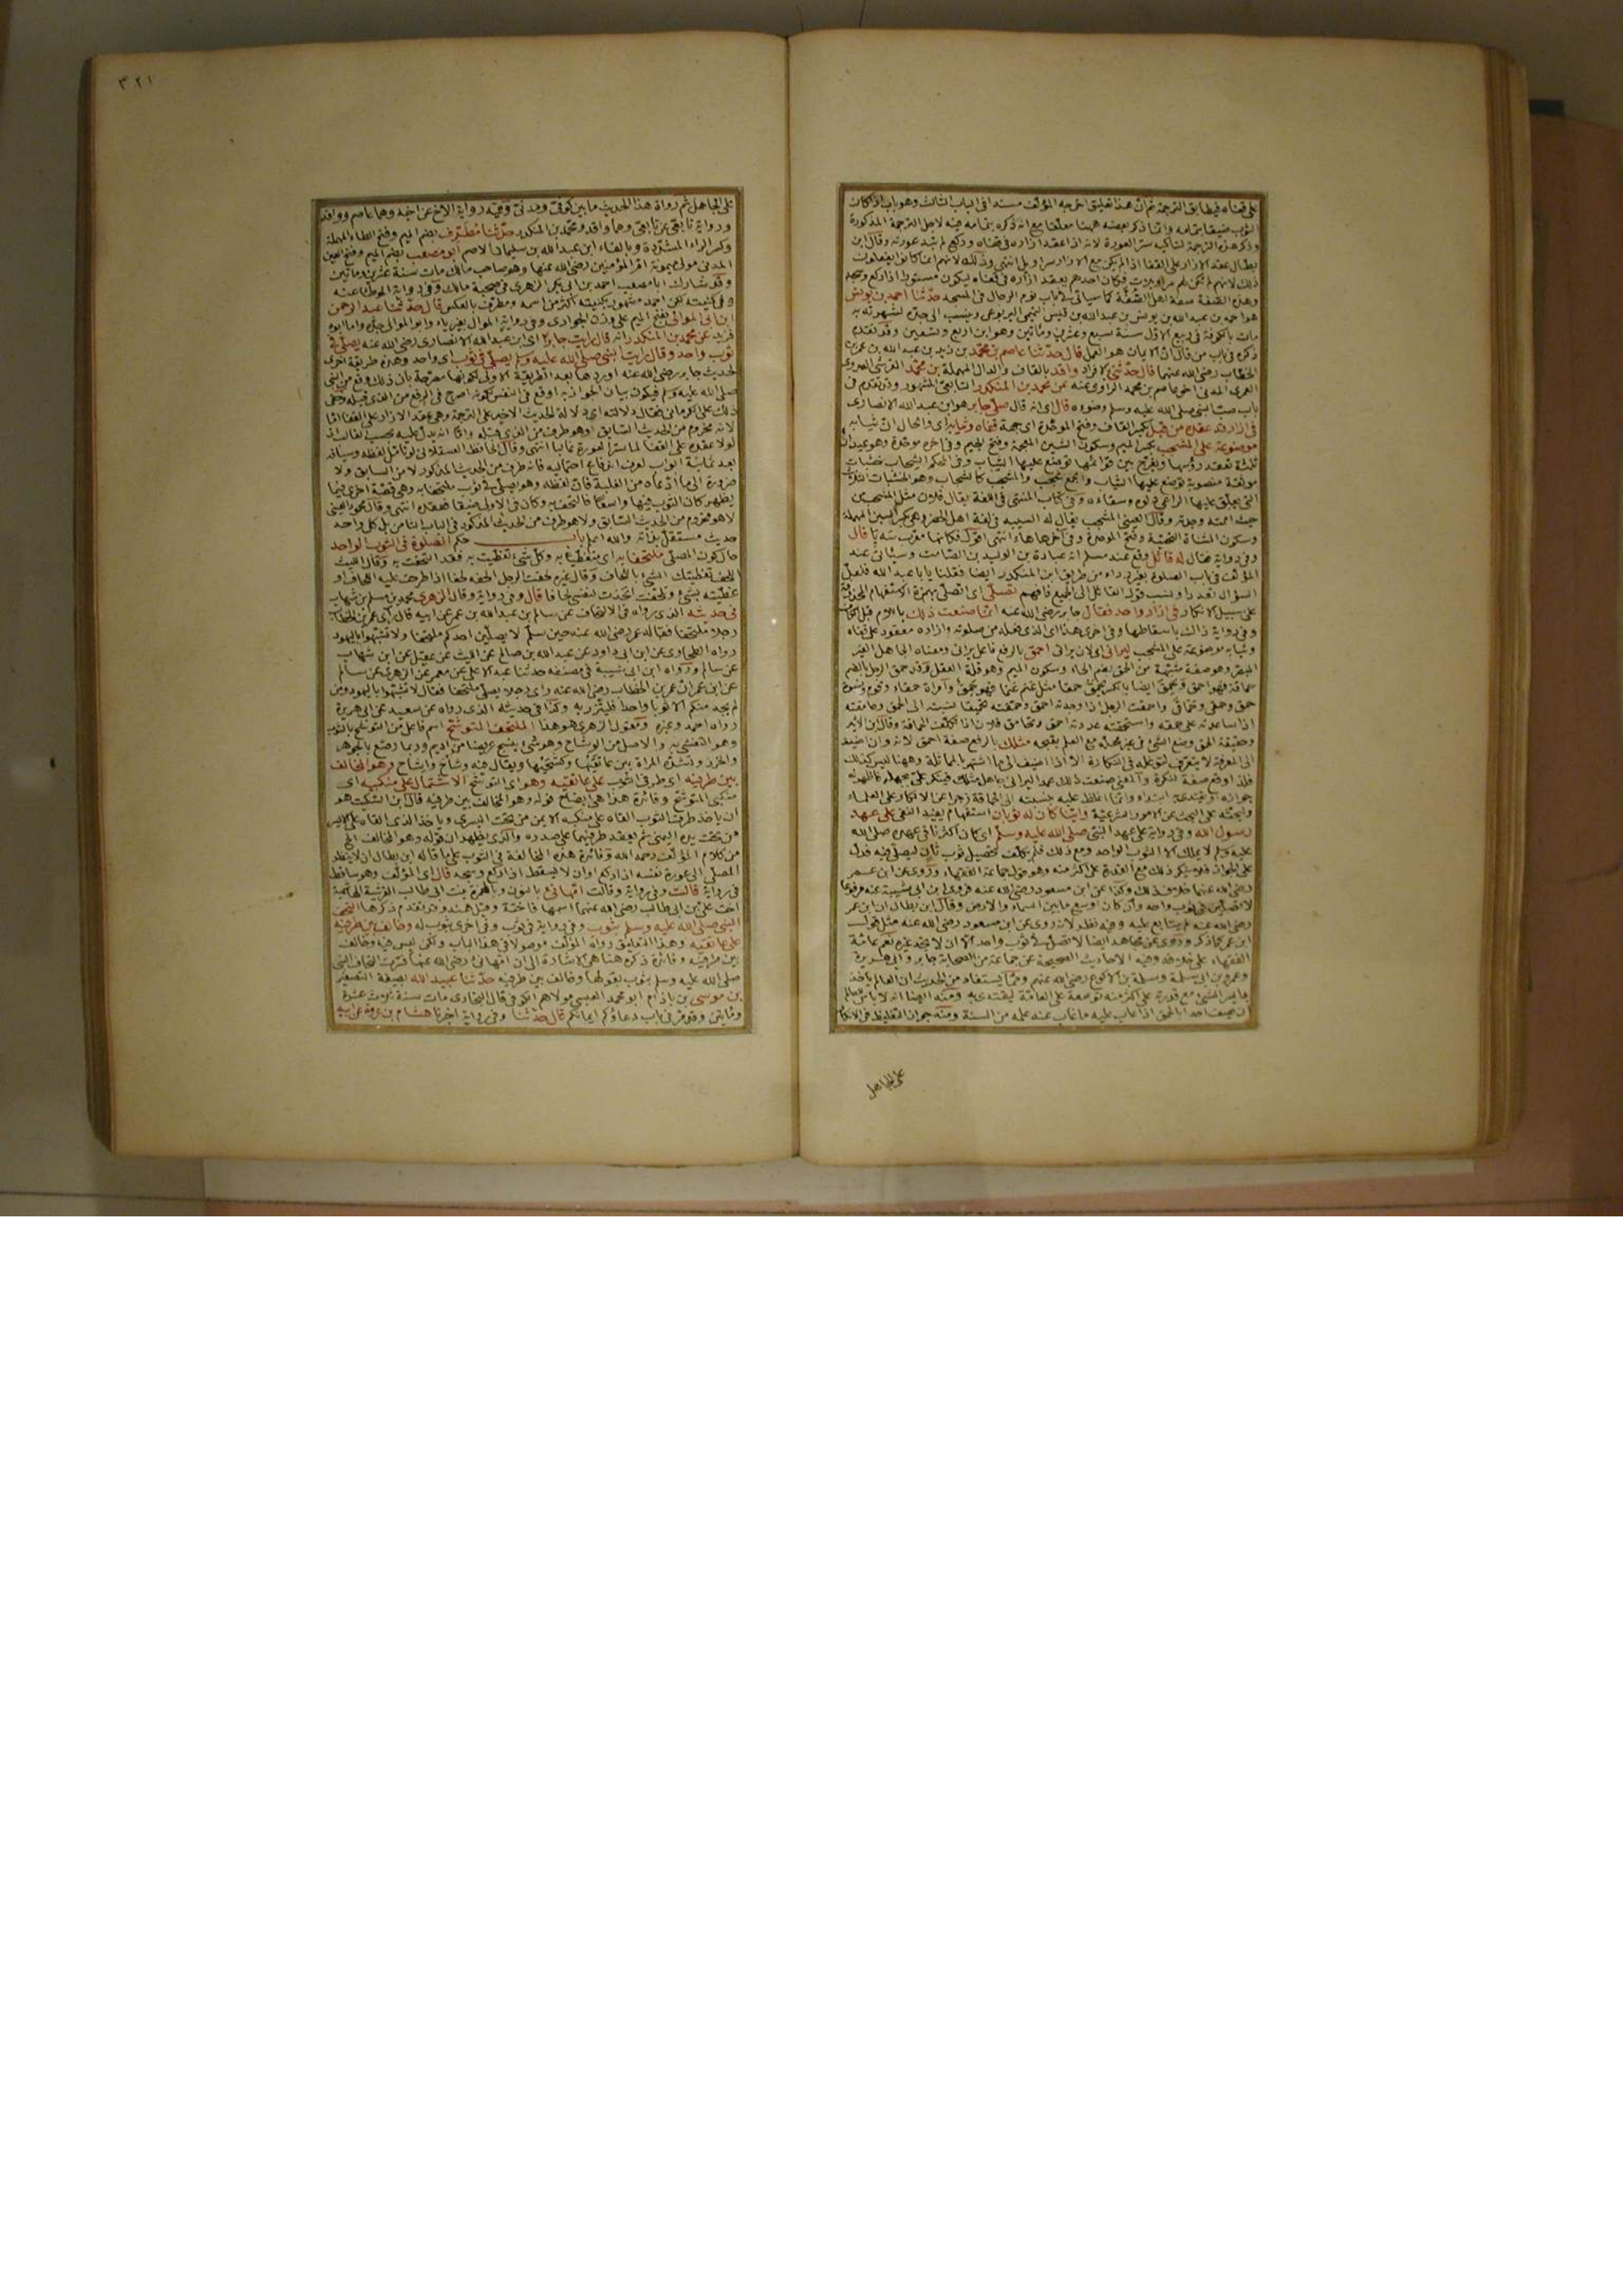 على قفاه فيطابق الترجمة ثم ان هذا تعليق اخرجه المؤلف مسندا في الباب الثالث وهو باب اذا كان
الثوب ضيقا بتمامه وانما ذكر بعضه ههنا معلقا مع انه ذكره بتمامه فيه لاجل الترجمة المذكورة
وذكر هذه الترجمة لتأكيد ستر العورة لانه اذا عقد ازاره في قفاه وركع لم تبد عورته وقال ابن
بطال عقد الازار على القفا اذا لم يكن مع الازار سراويل انتهى وذلك لانهم انما كانوا يفعلون
ذلك لانهم لم تكن لهم سراويلات فكان احدهم يعقد ازاره في قفاه ليكون مستورا اذا ركع وسجد
وهذه الصفة صفة اهل الصفة كما سيأتي في باب نوم الرجال في المسجد حدثنا احمد بن يونس
هو احمد بن عبد الله بن يونس بن عبد الله بن قيس التميمي اليربوعي وينسب الى جده لشهرته به
مات بالكوفة في ربيع الاول سنة سبع وعشرين ومائتين وهو ابن اربع وتسعين وقد تقدم
ذكره في باب من قال ان الايمان هو العمل قال حدثنا عاصم بن محمد بن زيد بن عبد الله بن عمر بن
الخطاب رضي الله عنهما قال حدثني بالافراد واقد بالقاف والدال المهملة بن محمد القرشي العدوي
العمري المدني اخو عاصم بن محمد الراوي عنه عن محمد بن المنكدر التابعي المشهور وقد تقدم في
باب صب النبي صلى الله عليه وسلم وضوءه قال اي انه قال صلى جابر هو ابن عبد الله الانصاري
في ازار قد عقده من قبل بكسر القاف وفتح الموحدة اي جهة قفاه وثيابه اي والحال ان ثيابه
موضوعة على المشجب بكسر الميم وسكون الشين المعجمة وفتح الجيم وفي آخره موحدة وهو عيدان
ثلاثة تعقد رؤسها ويفرج بين قوائمها توضع عليها الثياب وفي المحكم الشجاب خشبات
موثقة منصوبة توضع عليها الثياب والجمع شجب والمشجب كالشجاب وهو الخشبات الثلاث
التي يعلق عليها الراعي دلوه وسقاءه وفي كتاب المنتهى في اللغة يقال فلان مثل المشجب من
حيث اممته وجدته وقال العيني المشجب يقال له السيبه في لغة اهل الحضر وهي بكسر السين المهملة
وسكون المثناة التحتية وفتح الموحدة وفي آخرها هاء انتهى اقول فكانها معرب سه پا قال
وفي رواية فقال له قائل وقع عند مسلم انه عبادة بن الوليد بن الصامت وسيأتي عند
المؤلف في باب الصلوة بغير رداء من طريق ابن المنكدر ايضا فقلنا يا ابا عبد الله فلعل
السؤال تعدد او نسب قول القائل الى الجميع فافهم تصلي اي اتصلي بهمزة الاستفهام المحذوفة
على سبيل الانكار في ازار واحد فقال جابر رضي الله عنه انما صنعت ذلك باللام قبل الكاف
وفي رواية ذاك باسقاطها وفي اخرى هذا اي الذي فعله من صلوته وازاره معقود على قفاه
وثيابه موضوعة على المشجب ليراني اي لان يراني احمق بالرفع فاعل يراني ومعناه الجاهل الغير
المتيقن وهو صفة مشبهة من الحمق بضم الحاء وسكون الميم وهو قلة العقل وقد حمق الرجل بالضم
حماقة فهو احمق وحمق ايضا بالكسر يحمق حمقا مثل غنم غنما فهو حمق وامرأة حمقاء وقوم ونسوة
حمق وحمقى وحماقى واحمقت الرجل اذا وجدته احمق وحمقته تحميقا نسبته الى الحمق وحامقته
اذا ساعدته على حمقه واستحمقته عددته احمق وتحامق فلان اذا تكلف الحماقة وقال ابن الاثير
وحقيقة الحمق وضع الشيء في غير محله مع العلم بقبحه مثلك بالرفع صفة احمق لانه وان اضيف
الى المعرفة لا يتعرف لتوغله في النكارة الا اذا اضيف الى ما اشتهر بالمماثلة وههنا ليس كذلك
فلذا وقع صفة لنكرة والمعنى صنعت ذلك عمدا ليراني جاهل مثلك فينكر علي بجهله فاظهر له
جوازه او يقتدي بي ابتداء وانما اغلظ عليه بنسبته الى الحماقة زجرا عن الانكار على العلماء
والحثه على البحث عن الامور الشرعية واينا كان له ثوبان استفهام يفيد النفي على عهد
رسول الله وفي رواية على عهد النبي صلى الله عليه وسلم اي كان اكثرنا في عهده صلى الله
عليه وسلم لا يملك الا الثوب الواحد ومع ذلك فلم يكلف تحصيل ثوب ثان ليصلي فيه فدل
على الجواز فلا ينكر ذلك مع القدرة على اكثر منه وهو قول جماعة الفقهاء وروي عن ابن عمر
رضي الله عنهما خلاف ذلك وكذا عن ابن مسعود رضي الله عنه فروى ابن ابي شيبة عنه مرفوعا
لا تصلين في ثوب واحد وان كان اوسع ما بين السماء والارض وقال ابن بطال ان ابن عمر
رضي الله عنه لم يتابع عليه وفيه نظر لانه روى عن ابن مسعود رضي الله عنه مثل قول
ابن عمر كما ذكر وروى عن مجاهد ايضا لا تصل في ثوب واحد الا ان لا تجد غيره نعم عامة
الفقهاء على خلافه وفيه الاحاديث الصحيحة عن جماعة من الصحابة جابر وابي هريرة
وعمرو بن ابي سلمة وسلمة بن الاكوع رضي الله عنهم ومما يستفاد من الحديث ان العالم يأخذ
بايسر الشيء مع قدرة على اكثر منه توسعة على العامة ليقتدى به ومنه ايضا انه لا بأس للعالم
ان يصف احدا بالحمق اذا عاب عليه ما غاب عنه علمه من السنة ومنه جواز التغليظ في الانكار
على الجاهل
٣٢١
على الجاهل ثم رواة هذا الحديث ما بين كوفي ومدني وفيه رواية الاخ عن اخيه وهما عاصم وواقد
ورواية تابعي عن تابعي وهما واقد ومحمد بن المنكدر حدثنا مطرف بضم الميم وفتح الطاء المهملة
وكسر الراء المشددة وبالفاء ابن عبد الله بن سليمان الاصم ابو مصعب بضم الميم وفتح العين
المدني مولى ميمونة ام المؤمنين رضي الله عنها وهو صاحب مالك مات سنة عشرين ومائتين
وقد شارك ابا مصعب احمد بن ابي بكر الزهري في صحبة مالك وفي رواية الموطأ عنه
وفي كنيته لكن احمد مشهور بكنيته اكثر من اسمه ومطرف بالعكس قال حدثنا عبد الرحمن
ابن ابي الموالي بفتح الميم على وزن الجواري وفي رواية الموال بغير ياء وابو الموالي جده واما ابوه
فزيد عن محمد بن المنكدر انه قال رايت جابرا اي ابن عبد الله الانصاري رضي الله عنه يصلي في
ثوب واحد وقال رايت النبي صلى الله عليه وسلم يصلي في ثوب اي واحد وهذه طريقة اخرى
لحديث جابر رضي الله عنه اوردها بعد الطريقة الاولى لكونها مصرحة بان ذلك وقع من النبي
صلى الله عليه وسلم فيكون بيان الجواز به اوقع في النفس لكونه اصرح في الرفع من الذي قبله وخفي
ذلك على الكرماني فقال دلالته اي دلالة الحديث الاخير على الترجمة وهي عقد الازار على القفا اما
لانه مخروم من الحديث السابق او هو طرف من الذي قبله واما انه يدل عليه بحسب الغالب اذ
لولا عقده على القفا لما ستر العورة غالبا انتهى وقال الحافظ العسقلاني لو تأمل لفظه وسياقه
بعد ثمانية ابواب لعرف اندفاع احتماليه فانه طرف من الحديث المذكور لا من السابق ولا
ضرورة الى ما ادعاه من الغلبة فان لفظه وهو يصلي في ثوب ملتحفا به وهي قصة اخرى فيما
يظهر كان الثوب فيها واسعا فالتحف به وكان في الاولى ضيقا فعقده انتهى وقال محمود العيني
لا هو مخروم من الحديث السابق ولا هو طرف من الحديث المذكور في الباب الثامن بل كل واحد
حديث مستقل بذاته والله اعلم باب حكم الصلوة في الثوب الواحد
حال كون المصلي ملتحفا به اي متغطيا به وكل شيء تغطيت به فقد التحفت به وقال الليث
اللحف تغطيتك الشيء باللحاف وقال غيره لحفت الرجل الحفه لحفا اذا طرحت عليه اللحاف او
غطيته بشيء وتلحفت اتخذت لنفسي لحافا قال وفي رواية وقال الزهري محمد بن مسلم بن شهاب
في حديثه الذي رواه في الالتحاف عن سالم بن عبد الله بن عمر عن ابيه قال رأى عمر بن الخطاب
رجلا ملتحفا فقال له عمر رضي الله عنه حين سلم لا يصلين احدكم ملتحفا ولا تشبهوا باليهود
رواه الطحاوي عن ابن ابي داود عن عبد الله بن صالح عن الليث عن عقيل عن ابن شهاب
عن سالم ورواه ابن ابي شيبة في مصنفه حدثنا عبد الاعلى عن معمر عن الزهري عن سالم
عن ابن عمر ان عمر بن الخطاب رضي الله عنه رأى رجلا يصلي ملتحفا فقال لا تشبهوا باليهود ومن
لم يجد منكم الا ثوبا واحدا فليتزر به وكذا في حديثه الذي رواه عن سعيد عن ابي هريرة
رواه احمد وغيره ومقول الزهري هو هذا الملتحف المتوشح اسم فاعل من التوشح بالثوب
وهو التغشي به والاصل من الوشاح وهو شيء ينسج عريضا من اديم وربما رصع بالجوهر
والخرز وتشده المرأة بين عاتقيها وكشحيها ويقال فيه وشاح واشاح وهو المخالف
بين طرفيه اي طرفي الثوب على عاتقيه وهو اي التوشح الاشتمال على منكبيه اي
منكبي المتوشح وفائدة هذا هي ايضاح قوله وهو المخالف بين طرفيه قال ابن السكيت هو
ان يأخذ طرف الثوب القاه على منكبه الايمن من تحت اليسرى ويأخذ الذي القاه على الايسر
من تحت يده اليمنى ثم يعقد طرفيهما على صدره والذي يظهر ان قوله وهو المخالف الخ
من كلام المؤلف رحمه الله وفائدة هذه المخالفة في الثوب على ما قاله ابن بطال ان لا ينظر
المصلي الى عورة نفسه اذا ركع او ان لا يسقط اذا ركع وسجد قال اي المؤلف وهو ساقط
في رواية قالت وفي رواية وقالت ام هانئ بالنون وبالهمزة بنت ابي طالب القرشية الهاشمية
اخت علي بن ابي طالب رضي الله عنهما اسمها فاختة وقيل هند وقد تقدم ذكرها التحف
النبي صلى الله عليه وسلم بثوب وفي رواية في ثوب وفي اخرى بثوب له وخالف بين طرفيه
على عاتقيه وهذا التعليق رواه المؤلف موصولا في هذا الباب ولكن ليس فيه وخالف
بين طرفيه وفائدة ذكره هنا هي الاشارة الى ان ام هانئ رضي الله عنها فسرت التحاف النبي
صلى الله عليه وسلم بثوب بقولها وخالف بين طرفيه حدثنا عبيد الله بصيغة التصغير
بن موسى بن باذام ابو محمد العبسي مولاهم الكوفي قال البخاري مات سنة ثلاث عشرة
ومائتين وقد مر في باب دعاؤكم ايمانكم قال حدثنا وفي رواية اخبرنا هشام بن عروة عن ابيه